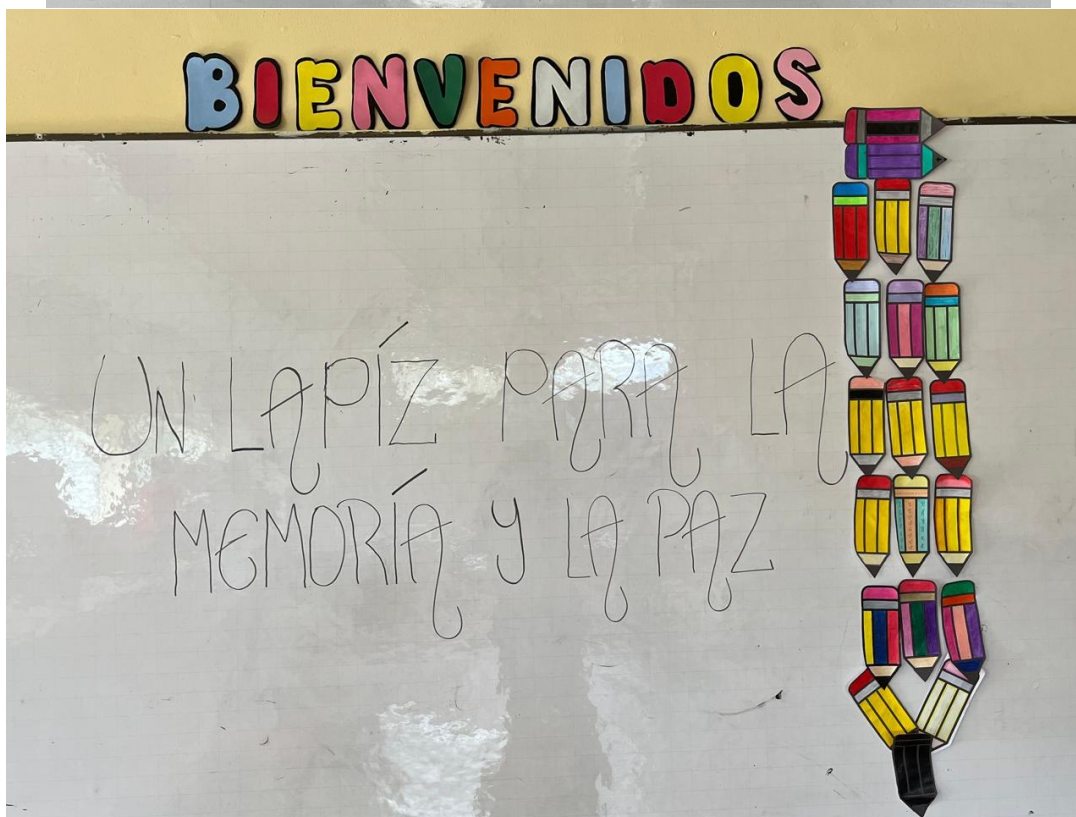 BIENVENIDOS
UN LAPÍZ PARA LA
MEMORÍA Y LA PAZ